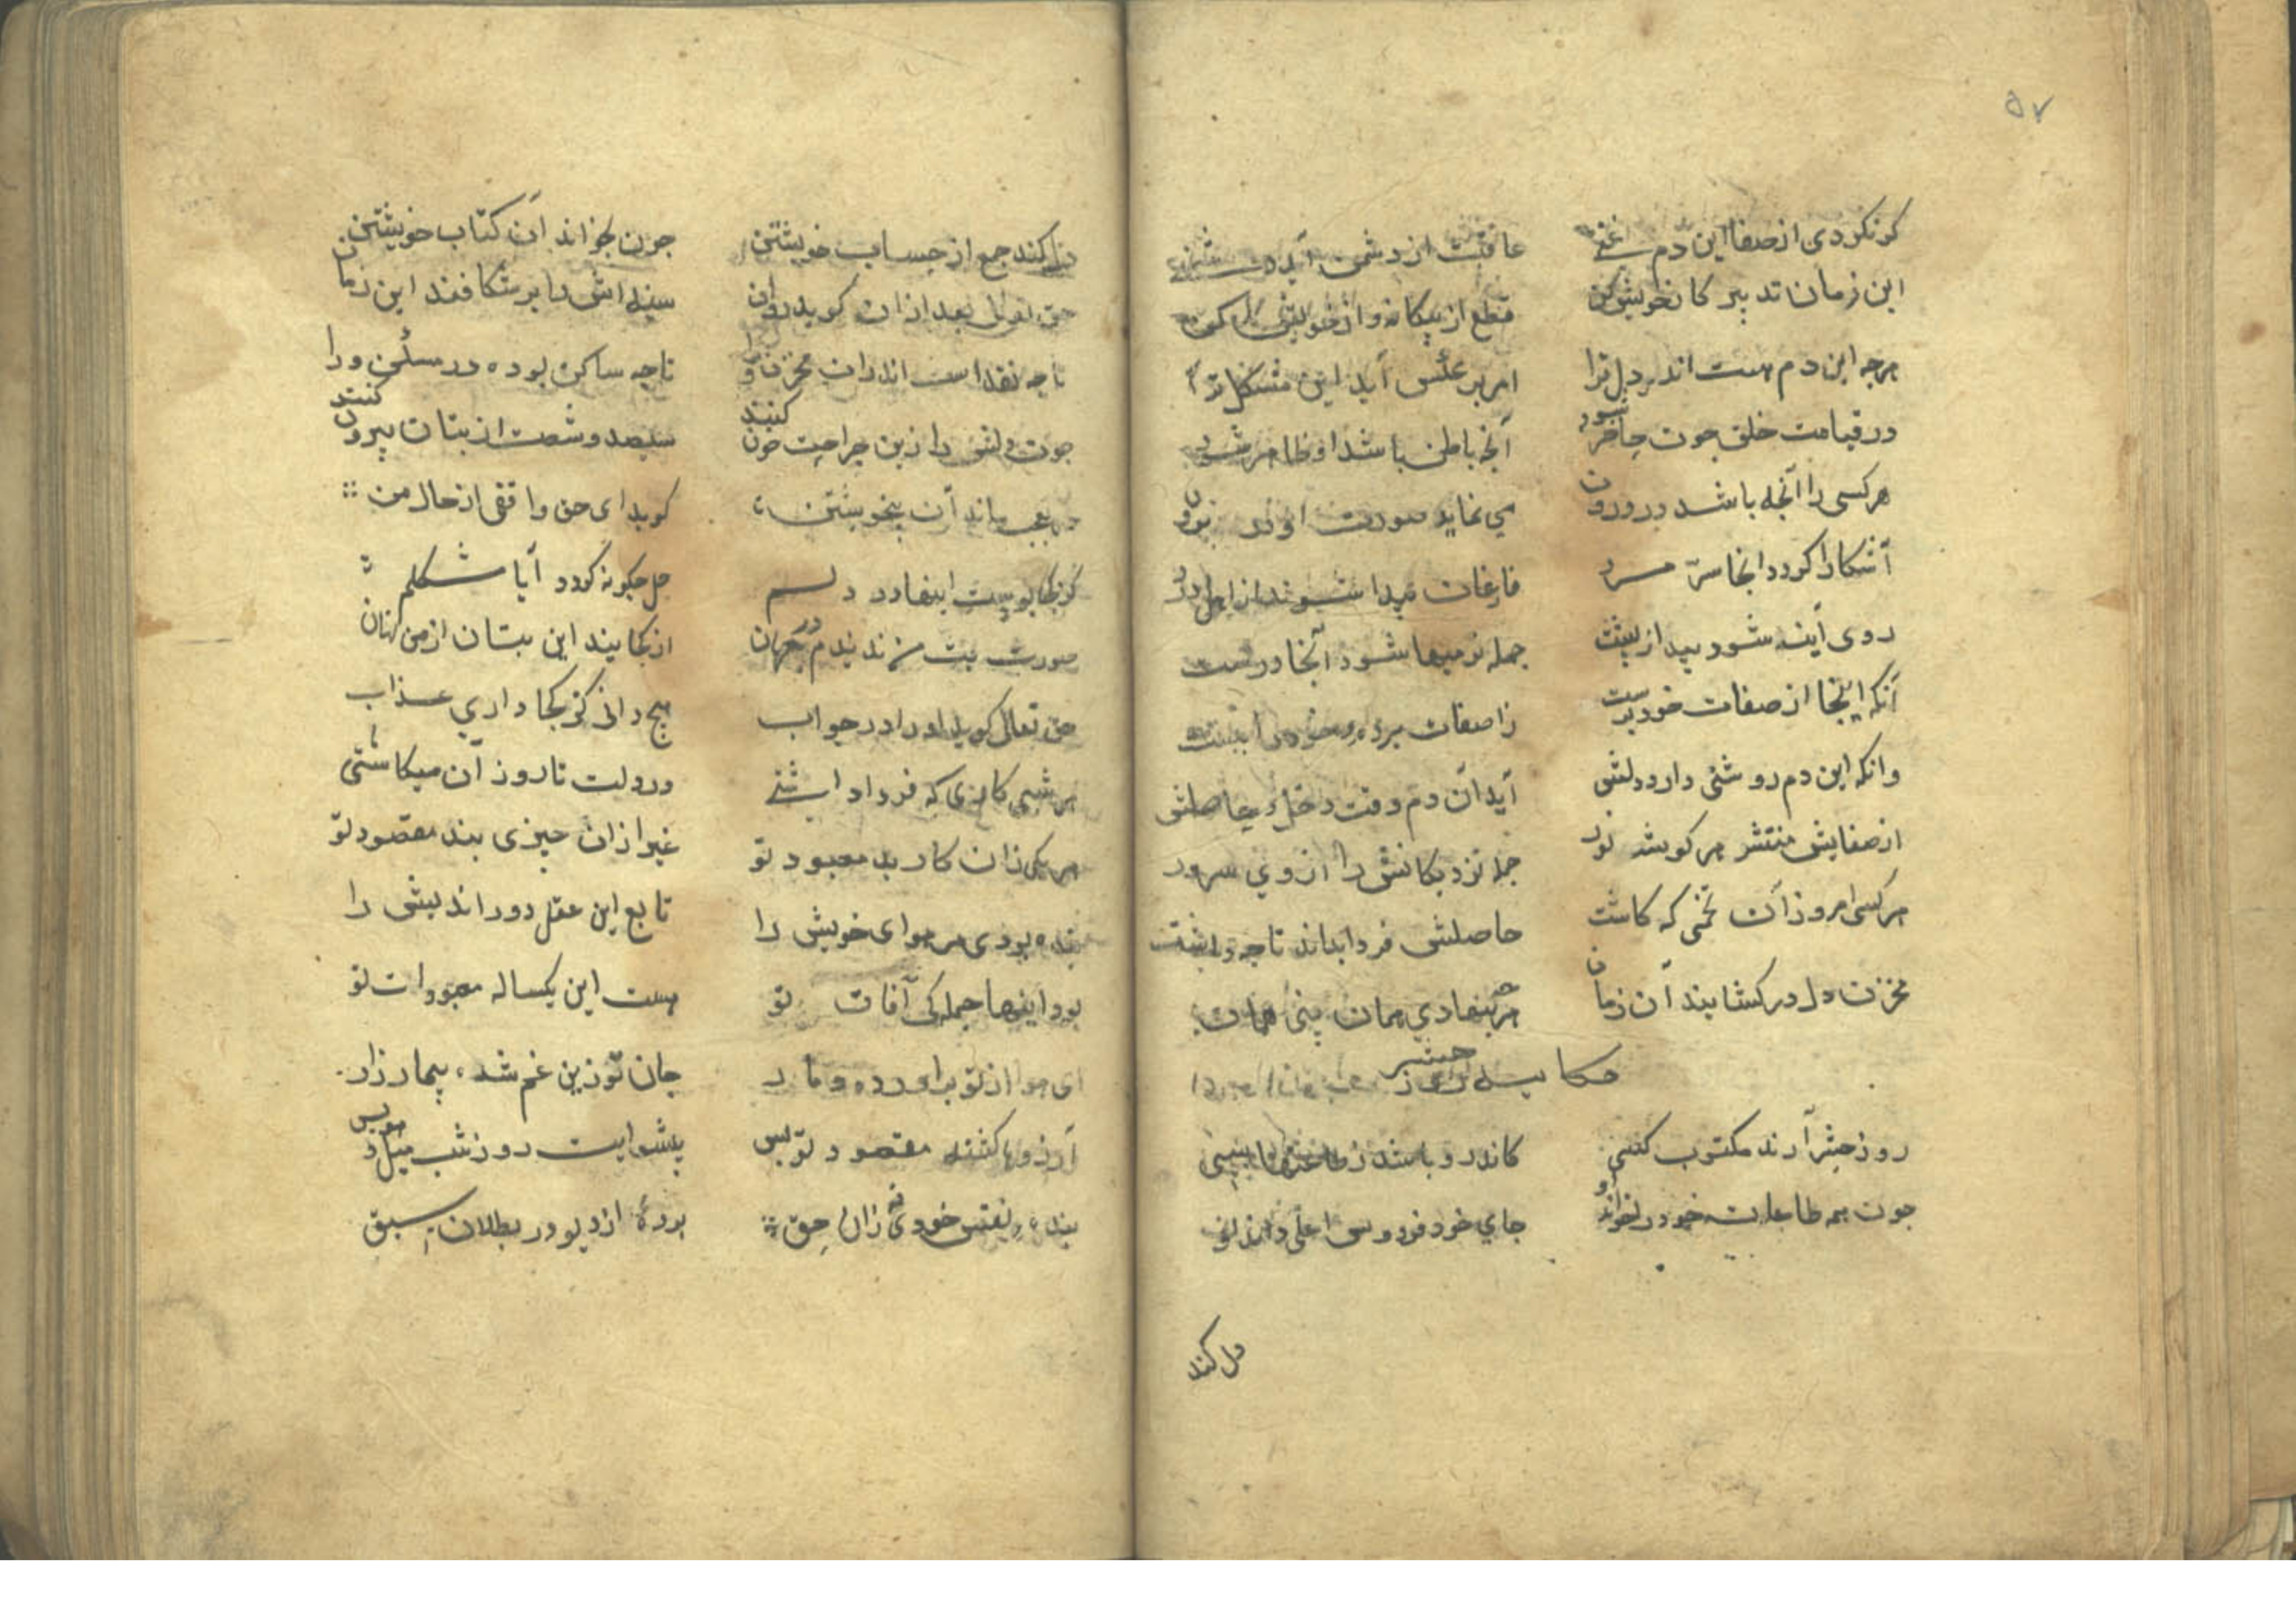 ۵۷
کر نکردی از صفا این دم غنی
عاقبت از دشمن آید
این زمان تدبیر کار خویش کن
قطع از بیکانه و از خویش کن
هرجه این دم هست اندر دل ترا
امر بر عکس آید این مشکل ترا
در قیامت خلق جون حاضر شود
آنجه باطن باشد او ظاهر شود
هرکسی را آنجه باشد در درون
می نماید صورت او در برون
آشکارا کردد انجا سرّ مرد
فارغان پیدا شوند از اهل درد
روی آینه شود پیدا ز پشت
جمله نرمیها شود آنجا درشت
آنکه اینجا از صفات خود پرست
زا صفات مرده
وانکه این دم روشنی دارد دلش
آید آن دم وقت دخل و حاصلش
از صفایش منتشر هر کوشه نور
جمله نزدیکانش را از وی سرور
هرکسی امروز آن تخمی که کاشت
حاصلش فردا بداند تا چه داشت
مخزن دل درکشایند آن زمان
هرچه بنهادی همان بینی همان
حکایت روز حشر
روز حشر آرند مکتوب کسی
کاندرو باشد ز طاعتها بسی
جون همه طاعات خود در خواند او
جای خود فردوس اعلی داند او
دل کند
دل کند جمع از حساب خویشتن
جون بخواند آن کتاب خویشتن
حق تعالی بعد از ان کوید روان
سینه اش را برشکافند این زمان
تاجه نقد است اندران مخزن ورا
تاجه ساکن بوده در مسکن ورا
جون دلش را زین جراحت خون کنند
سیصد و شصت از بتان بیرون کنند
در عجب ماند آن بیخویشتن
کوید ای حق واقفی از حال من
کز کجا بوست اینها در دلم
حل جکونه کردد آیا مشکلم
صورت بت من ندیدم در جهان
از کجایند این بتان از من نهان
حق تعالی کوید او را در جواب
هیج دانی کز کجا داری عذاب
هر شبی کاری که فردا داشتی
در دلت تا روز آن میکاشتی
هر یکی زان کار بد معبود تو
غیر ازان جیزی نبد مقصود تو
بنده بودی مر هوای خویش را
تابع این عقل دور اندیش را
بود اینها جملکی آفات تو
هست این یکساله معبودات تو
ای هوا از تو براورده دمار
جان تو زین غم شده بیمار زار
آرزوها کشته مقصود تو بس
پیشوایت روز شب میل و هوس
بنده نفس خودی نه زان حق
بردهٔ از دیو در بطلان سبق